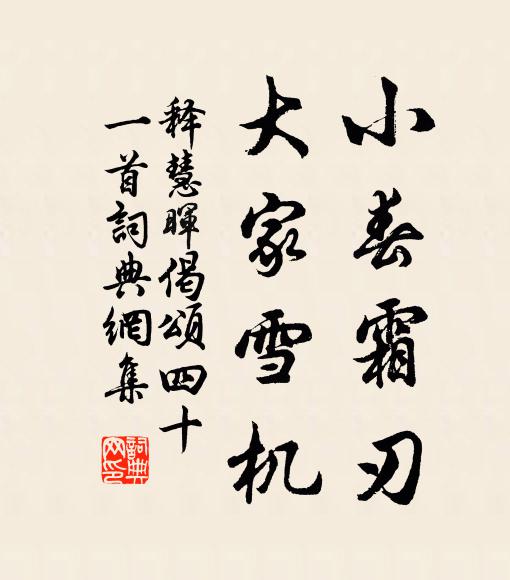 小春霜刃
大家雪机
释慧晖偈颂四十
一首詞典網集
詞典
网印